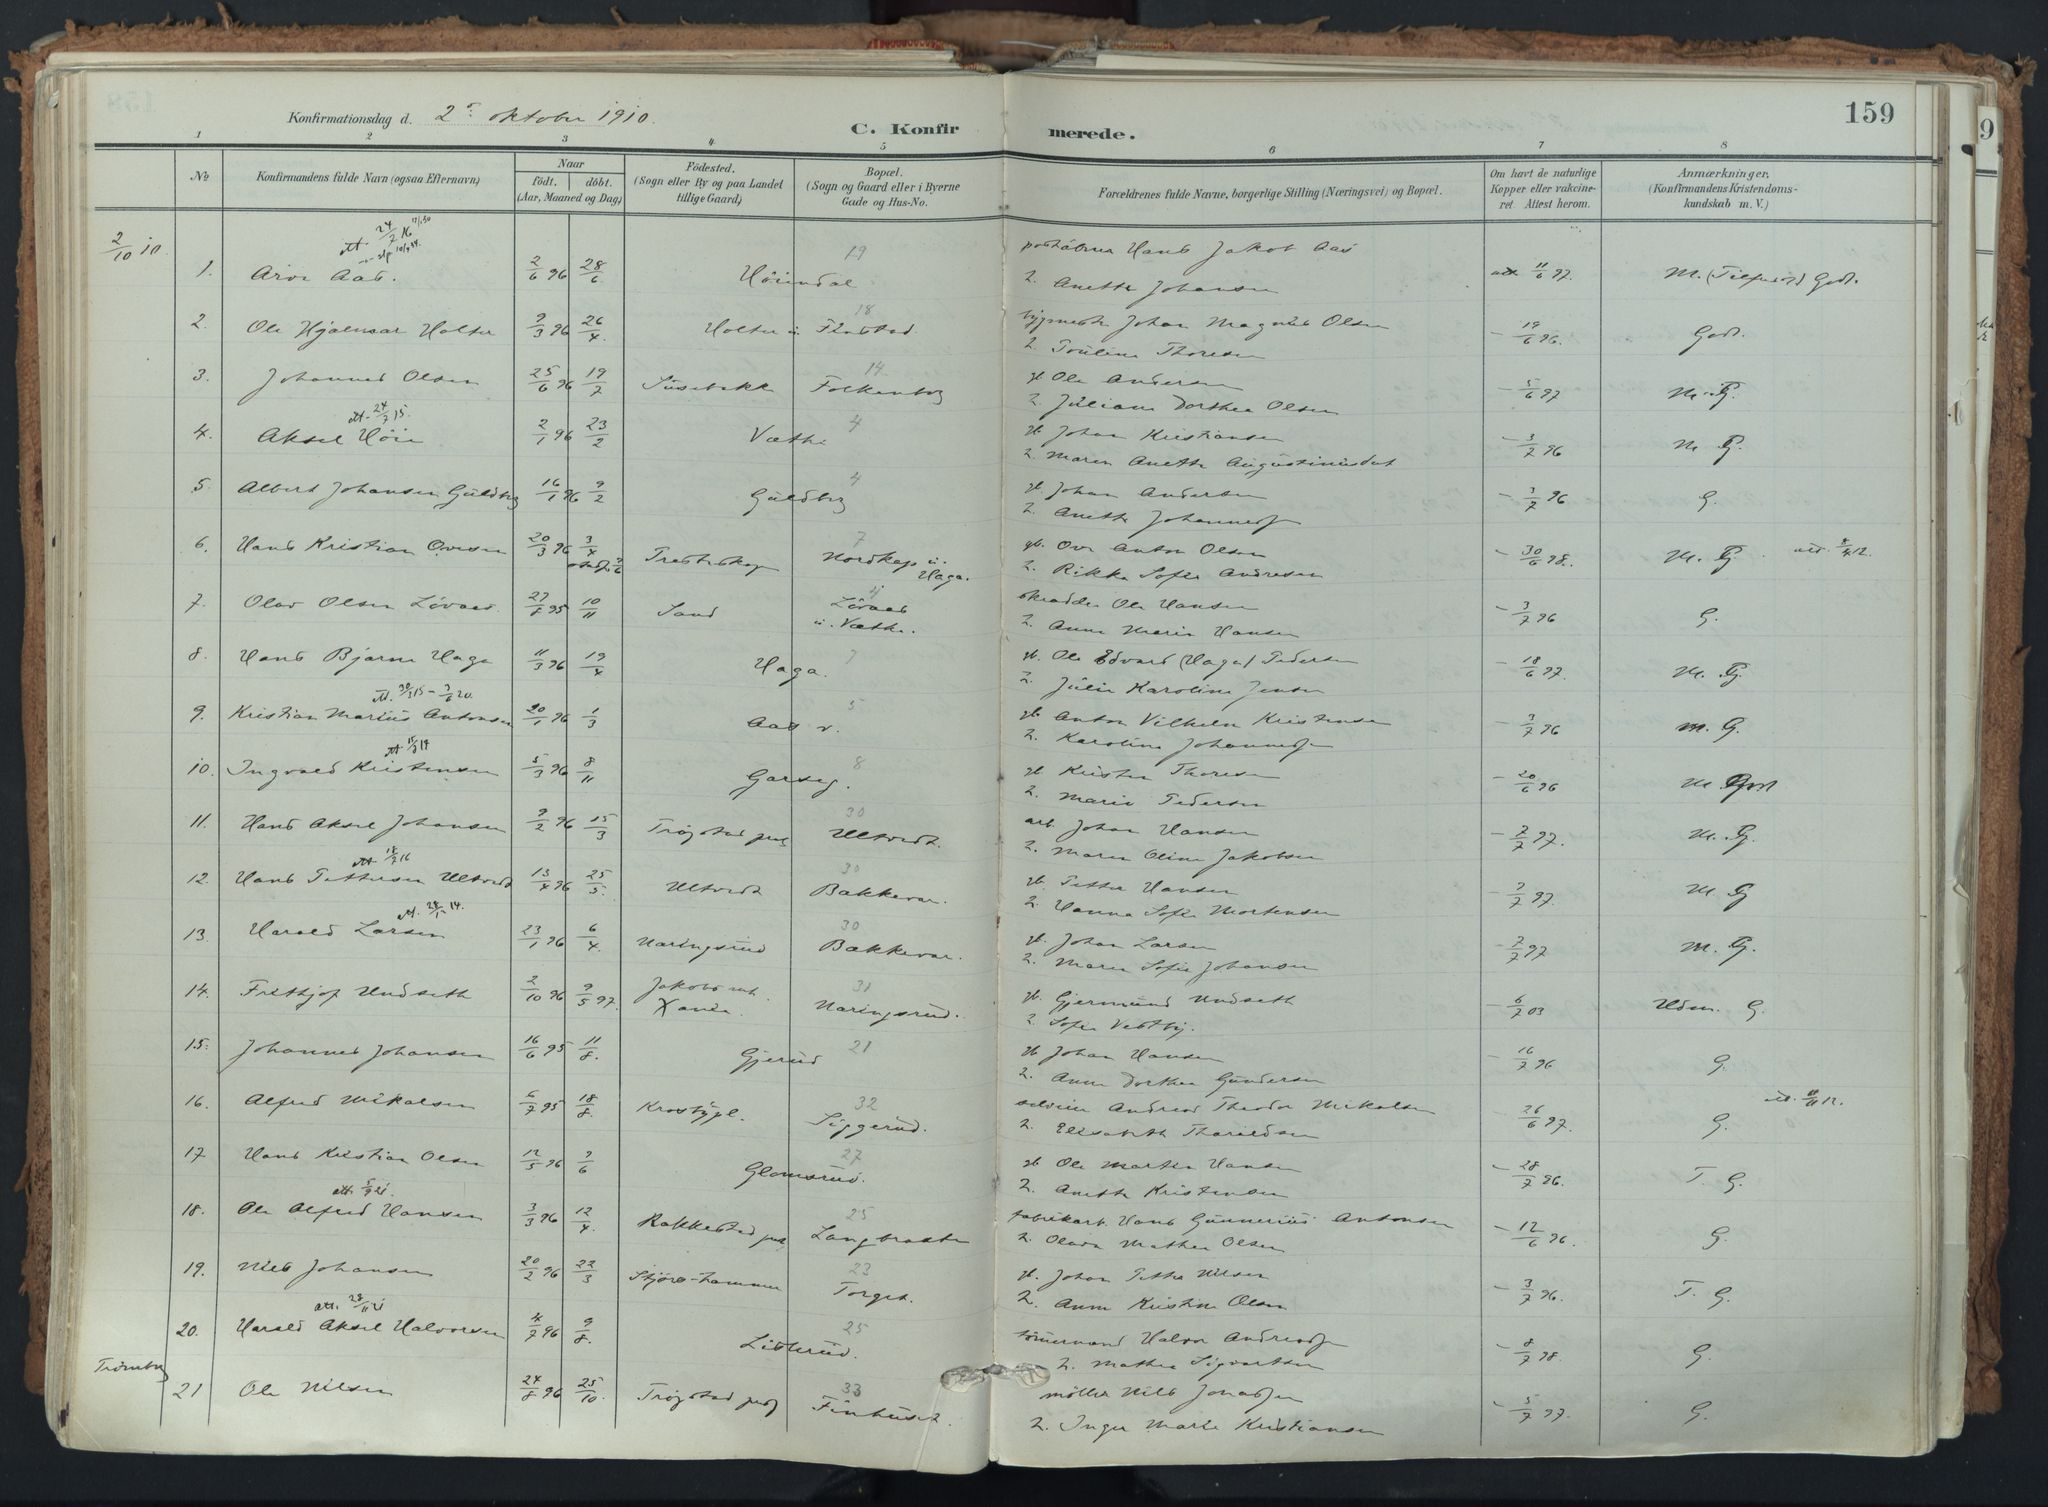 159
Konfirmationsdag d. 2 oktober 1910.
C. Konfirmerede.
1 2 3 4 5 6 7 8
No
Konfirmandens fulde Navn (ogsaa Efternavn)
Naar
födt. döbt.
(Aar, Maaned og Dag)
Födested.
(Sogn eller By og paa Landet
tillige Gaard)
Bopæl.
(Sogn og Gaard eller i Byerne
Gade og Hus-No.
Forældrenes fulde Navne, borgerlige Stilling (Næringsvei) og Bopæl.
Om havt de naturlige
Kopper eller vakcine-
ret Attest herom.
Anmærkninger,
(Konfirmandens Kristendoms-
kundskab m. V.)
2/10 10
19
Hans Jakob Aas
1. Arve Aas. 2/6 96 28/6 Höiendal att 11/6 97. M. Godt.
2. Anette Johansen
18
2. Ole Hjalmar Holter 9/3 96 26/4 Holter Johan Magnus Olsen - 19/6 96. Godt.
2. Pouline Thoresen
14
3. Johannes Olsen 25/6 96 19/7 Susebakke Folkenborg gb. Ole Andersen - 5/6 97 M. G.
2. Juliane Dorthea Olsen
att. 24/7 15.
4
4. Aksel Höie 2/1 96 23/2 Væthe gb. Johan Kristiansen - 3/7 96 M G.
2. Maren Anette Augustinusdat
4
5. Albert Johansen Guldbg 16/1 96 9/2 Guldbg gb. Johan Andersen - 3/7 96 G.
2. Anette Johannesf
7
6. Hans Kristian Ovesen 20/3 96 3/4 Nordkap u. Haga. gb. Ove Anton Olsen - 30/6 98. M. G
2. Rikke Sofie Andresen
4
7. Olav Olsen Lövaas. 27/8 95 10/11 Sand Lövaas u. Væthe. skrædder Ole Hansen - 3/7 96 G.
2. Anne Marie Hansen
7
8. Hans Bjarne Haga 11/3 96 19/4 Haga. gb. Ole Edvard (Haga) Pedersen - 18/6 97. M. G.
2. Julie Karoline Jensen
5
9. Kristian Marius Antonsen 20/1 96 1/3 Aas v. gb. Anton Vilhelm Kristensen - 3/7 96 M. G.
2. Karoline Johannesf
8
10. Ingvald Kristensen 5/3 96 8/11 Garseg. gb Kristen Thoresen - 20/6 96 M. Godt
2. Marie Pedersen
30
11. Hans Aksel Johansen 9/2 96 15/3 Trøgstad Ultvedt. arb. Johan Hansen - 7/7 97. M. G.
2. Maren Oline Jakobsen
att. 18/7 16
30
12. Hans Pettersen Ultvedt 13/4 96 25/5. Ultvedt Bakkevar. gb. Petter Hansen - 7/7 97. M. G
2. Hanna Sofie Mortensen
30
13. Harald Larsen 23/1 96 6/4. Naringsrud Bakkevar. gb. Johan Larsen - 7/7 97 M. G.
2. Maren Sofie Johansen
31
14. Frithjof Undseth 2/10 96 9/5 97. Naringsrud. gb. Gjermund Undseth - 6/7 03 Udm. G.
2. Sofie Vestby.
21
15. Johannes Johansen 16/6 95 11/8. Gjerud gb Johan Hansen - 16/7 96 G.
2. Anne Dorthea Gundersen
32
16. Alfred Mikalsen 6/7 95 18/8. Siggerud. Andreas Theodor Mikalsen - 26/6 97. G.
2. Elisabeth Tharaldsen
27
17 Hans Kristian Olsen 12/5 96 7/6 Glomsrud. gb Ole Martin Hansen - 28/7 96. T. G.
2. Anette Kristensen
25
18. Ole Alfred Hansen 3/3 96 12/4. Rakkestad Langbraate fabrikarb. Hans Gunnerius Antonsen - 12/6 96. G
2. Olava Mathea Olsen
23
19. Nils Johansen 20/2 96 22/3 Torget. gb. Johan Petter Nilsen - 3/7 96. T. G.
2. Anne Kristine Olsen
25
20. Harald Aksel Halvorsen 4/7 96 9/8. Lislerud. tömmermand Halvor Andreasf - 8/7 98. G
2. Mathea Sigvartsen
Trömborg
33
21 Ole Nilsen 24/8 96 25/10. Trøgstad Finhuset. möller Nils Jonasf - 5/7 97. G.
2. Inger Marie Kristiansen